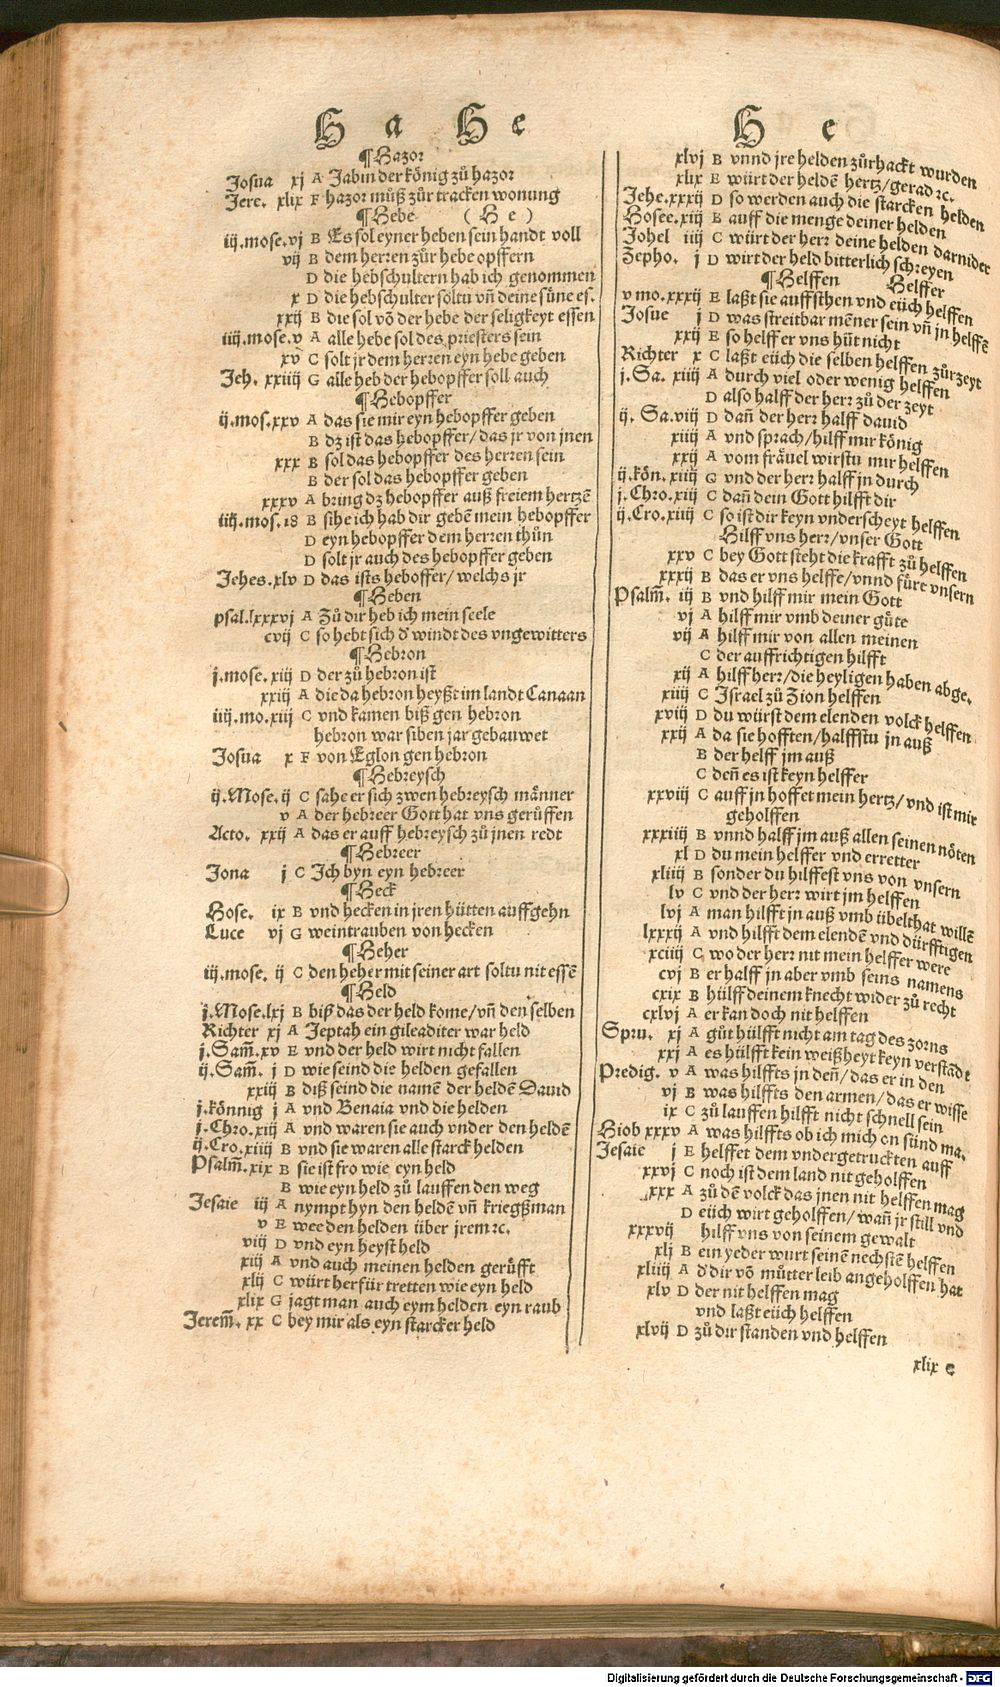 Ha He
¶Hazor
Josua xj A Jabin der kónig zů hazor
Jere. xlix F hazor můß zůr tracken wonung
¶Hebe (He)
iij.mose.vj B Es sol eyner heben sein handt voll
vij B dem herren zůr hebe opffern
D die hebschultern hab ich genommen
x D die hebschulter soltu vñ deine süne es.
xxij B die sol võ der hebe der seligkeyt essen
iiij.mose.v A alle hebe sol des priesters sein
xv C solt jr dem herren eyn hebe geben
Jeh. xxiiij G alle heb der hebopffer soll auch
¶Hebopffer
ij.mos.xxv A das sie mir eyn hebopffer geben
B dz ist das hebopffer/das jr von jnen
xxx B sol das hebopffer des herren sein
B der sol das hebopffer geben
xxxv A bring dz hebopffer auß freiem hertzẽ
iiij.mos.18 B sihe ich hab dir gebẽ mein hebopffer
D eyn hebopffer dem herren thůn
D solt jr auch des hebopffer geben
Jehes.xlv D das ists heboffer/welchs jr
¶Heben
psal.lxxxvj A Zů dir heb ich mein seele
cvij C so hebt sich d' windt des vngewitters
¶Hebron
j.mose.xiij D der zů hebron ist
xxiij A die da hebron heyßt im landt Canaan
iiij.mo.xiij C vnd kamen biß gen hebron
hebron war siben jar gebauwet
Josua x F von Eglon gen hebron
¶Hebreysch
ij.Mose.ij C sahe er sich zwen hebreysch männer
v A der hebreer Gott hat vns gerüffen
Acto. xxij A das er auff hebreysch zů jnen redt
¶Hebreer
Jona j C Ich byn eyn hebreer
¶Heck
Hose. ix B vnd hecken in jren hütten auffgehn
Luce vj G weintrauben von hecken
¶Heher
iij.mose. ij C den heher mit seiner art soltu nit essẽ
¶Held
j.Mose.lxj B biß das der held kome/vñ den selben
Richter xj A Jeptah ein gileaditer war held
j.Sam̃.xv E vnd der held wirt nicht fallen
ij.Sam̃. j D wie seind die helden gefallen
xxiij B diß seind die namẽ der heldẽ David
j.kónnig j A vnd Benaia vnd die helden
j.Chro.xij A vnd waren sie auch vnder den heldẽ
ij.Cro.xiiij B vnd sie waren alle starck helden
Psalm̃.xix B sie ist fro wie eyn held
B wie eyn held zů lauffen den weg
Jesaie iij A nympt hyn den heldẽ vñ kriegßman
v E wee den helden über jrem ꝛc.
viij D vnd eyn heyst held
xiij A vnd auch meinen helden gerüfft
xlij C würt herfür tretten wie eyn held
xlix G jagt man auch eym helden eyn raub
Jerem̃. xx C bey mir als eyn starcker held
He
xlvj B vnnd jre helden zůrhackt wurden
xlix E würt der heldẽ hertz/gerad ꝛc.
Jehe.xxxij D so werden auch die starcken helden
Hosee.xiij B auff die menge deiner helden
Johel iiij C würt der herr deine helden darnider
Zepho. j D wirt der held bitterlich schreyen
¶Helffen Helffer
v mo.xxxij E laßt sie auffsthen vnd eüch helffen
Josue j D was streitbar mẽner sein vñ jn helffẽ
xxij E so helff er vns hüt nicht
Richter x C laßt eüch die selben helffen zůrzeyt
j.Sa. xiiij A durch viel oder wenig helffen
D also halff der herr zů der zeyt
ij. Sa.viij D dañ der herr halff david
xiiij A vnd sprach/hilff mir kónig
xxij A vom fräuel wirstu mir helffen
ij.kón. xiiij G vnd der herr halff jn durch
j.Chro.xij C dañ dein Gott hilfft dir
ij.Cro.xiiij C so ist dir keyn vnderscheyt helffen
Hilff vns herr/vnser Gott
xxv C bey Gott steht die krafft zů helffen
xxxij B das er vns helffe/vnnd füre vnsern
Psalm̃. iij B vnd hilff mir mein Gott
vj A hilff mir vmb deiner güte
vij A hilff mir von allen meinen
C der auffrichtigen hilfft
xij A hilff herr/die heyligen haben abge.
xiiij C Israel zů Zion helffen
xviij D du würst dem elenden volck helffen
xxij A da sie hofften/halffstu jn auß
B der helff jm auß
C deñ es ist keyn helffer
xxviij C auff jn hoffet mein hertz/vnd ist mir
geholffen
xxxiiij B vnnd halff jm auß allen seinen nóten
xl D du mein helffer vnd erretter
xliiij B sonder du hilffest vns von vnsern
lv C vnd der herr wirt jm helffen
lvj A man hilfft jn auß vmb übelthat willẽ
lxxxij A vnd hilfft dem elendẽ vnd dürfftigen
xciiij C wo der herr nit mein helffer were
cvj B er halff jn aber vmb seins namens
cxix B hülff deinem knecht wider zů recht
cxlvj A er kan doch nit helffen
Spru. xj A gůt hülfft nicht am tag des zorns
xxj A es hülfft kein weißheyt keyn verstãdt
Predig. v A was hilffts jn deñ/das er in den
vj B was hilffts den armen/das er wisse
ix C zů lauffen hilfft nicht schnell sein
Hiob xxxv A was hilffts ob ich mich on sünd ma.
Jesaie j E helffet dem vndergetruckten auff
xxvj C noch ist dem land nit geholffen
xxx A zů dẽ volck das jnen nit helffen mag
D eüch wirt geholffen/wañ jr still vnd
xxxvij hilff vns von seinem gewalt
xlj B ein yeder wurt seinẽ nechstẽ helffen
xliiij A d' dir võ můtter leib angeholffen hat
xlv D der nit helffen mag
vnd laßt eüch helffen
xlvij D zů dir standen vnd helffen
xlix C
Digitalisierung gefördert durch die Deutsche Forschungsgemeinschaft - DFG